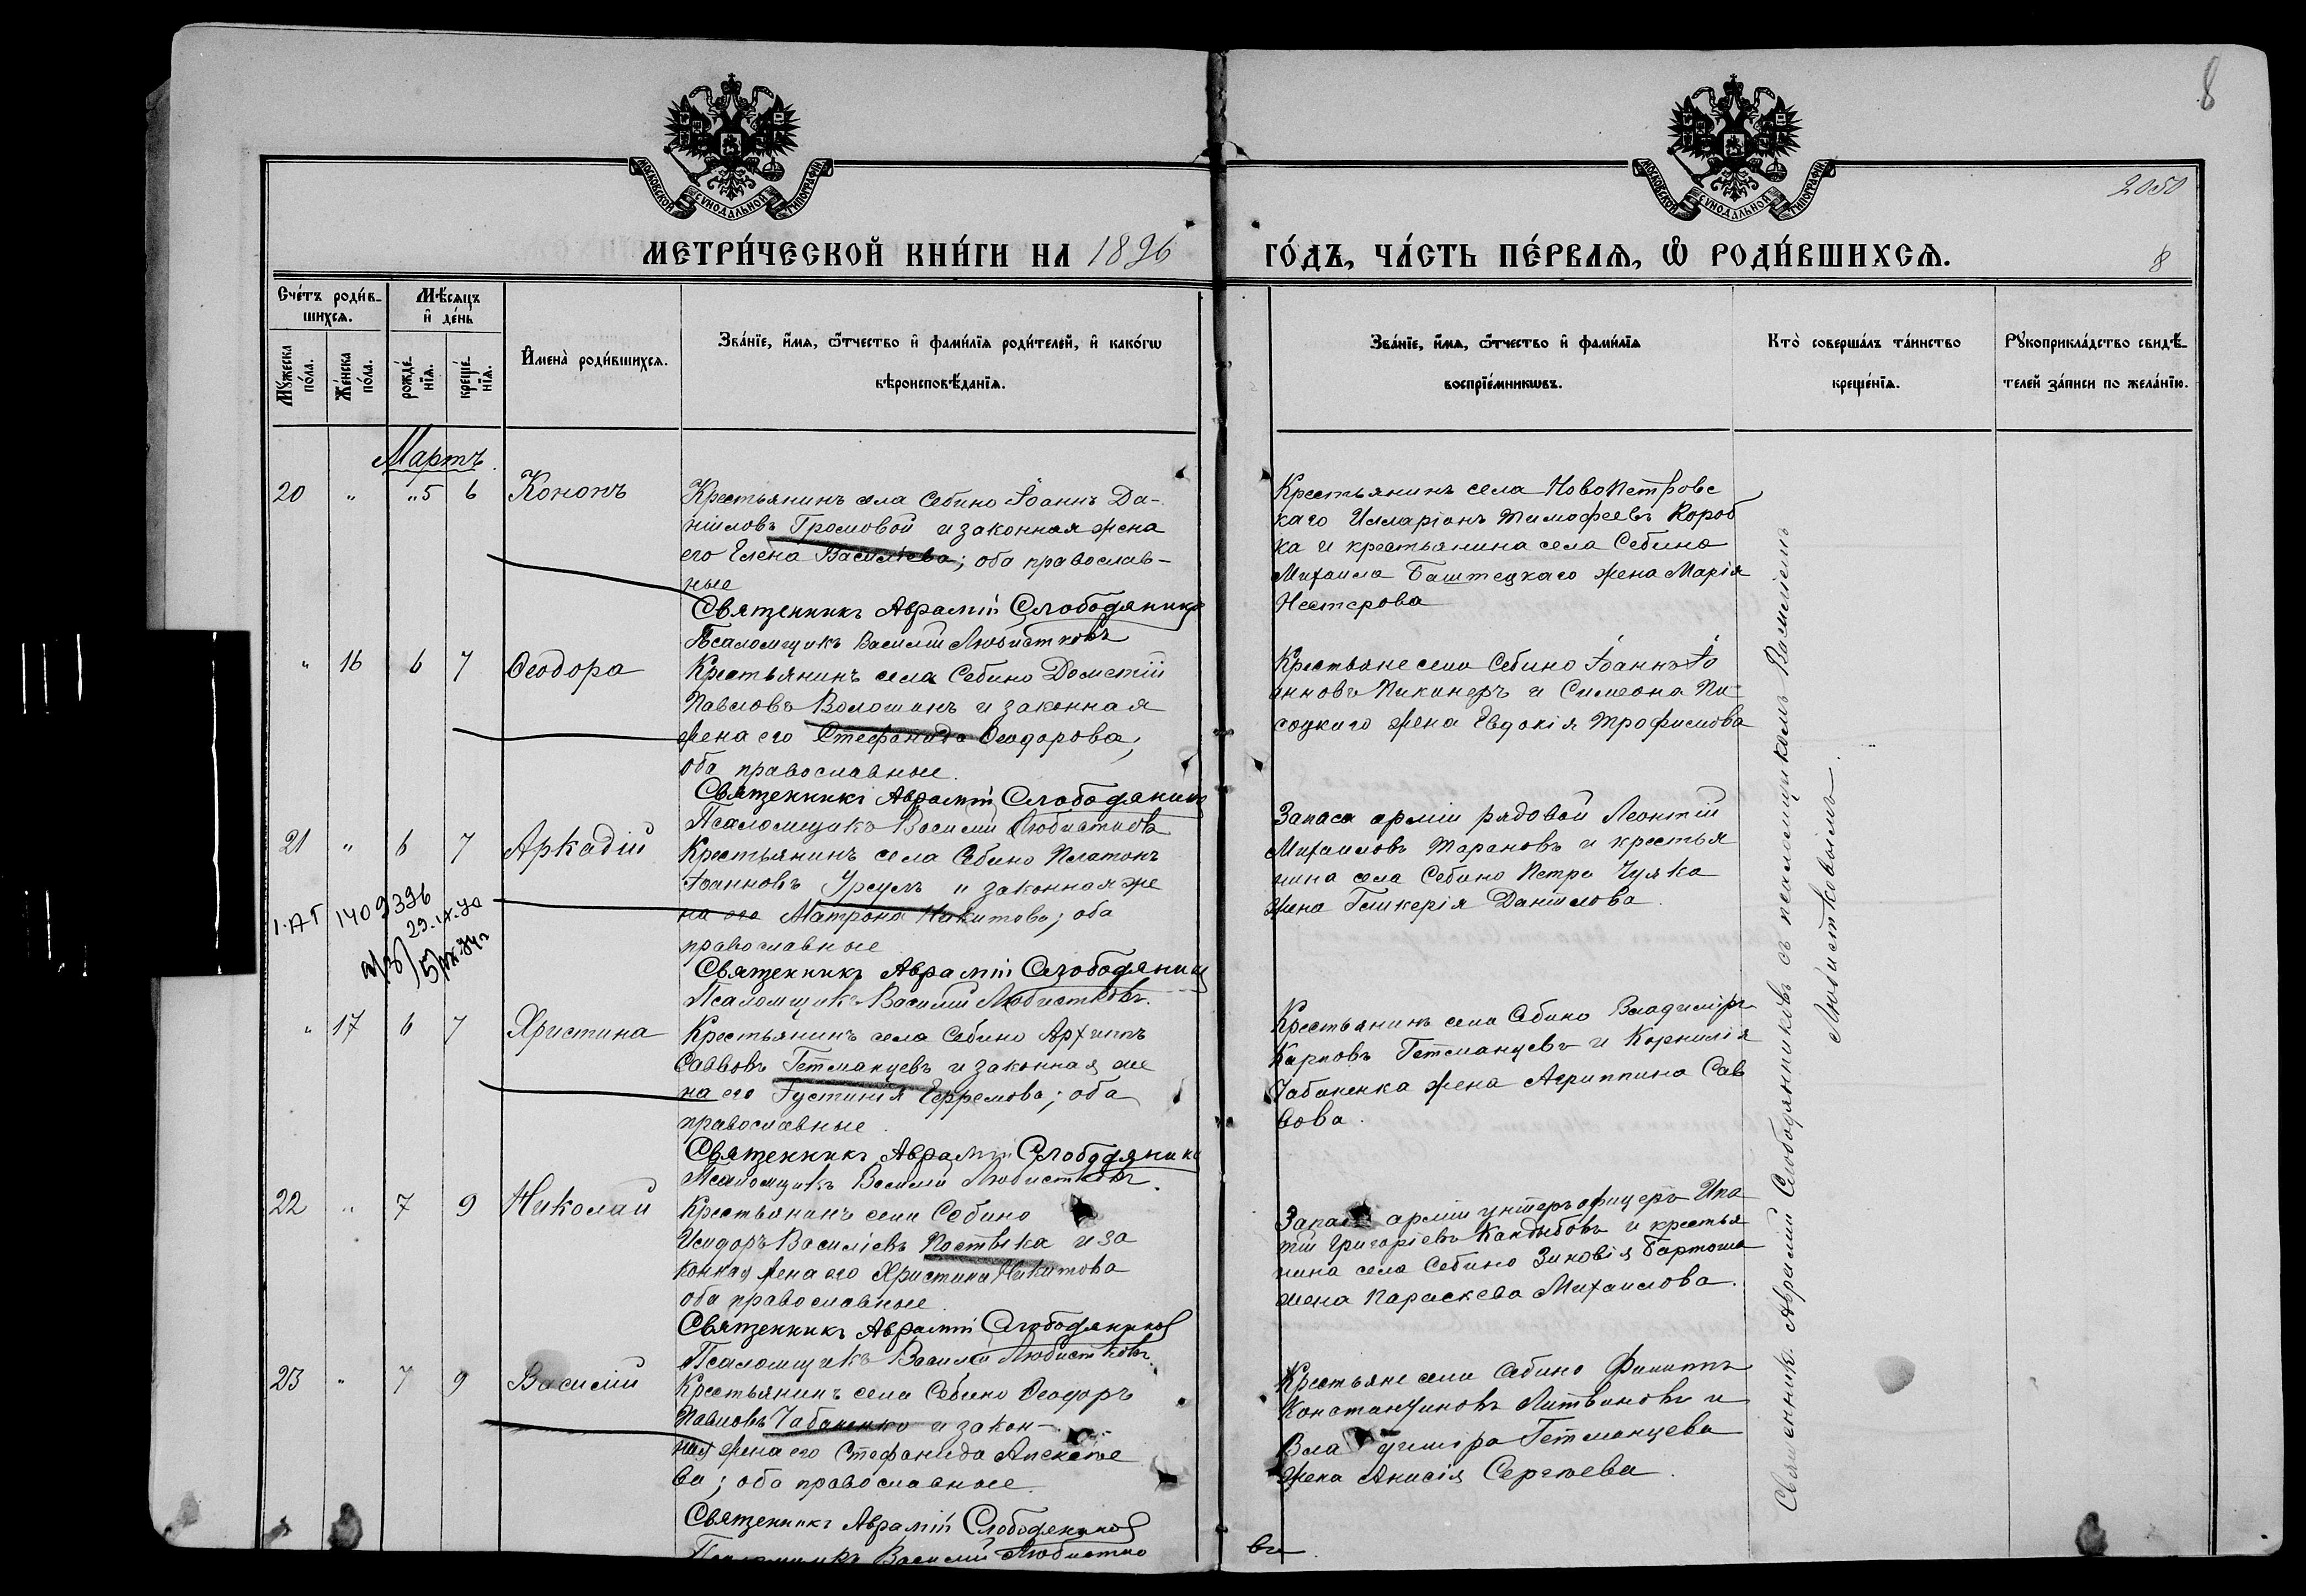 8
МОСКОВСКОЙ СУНОДАЛЬНОЙ ТИПОГРАФІИ
МОСКОВСКОЙ СУНОДАЛЬНОЙ ТИПОГРАФІИ
2050
МЕТРИ́ЧЕСКОЙ КНИ́ГИ НА 1896 ГО́ДЪ, ЧА́СТЬ ПЕ́РВАѦ, Ѡ҆ РОДИ́ВШИХСѦ.
8
Сче́тъ роди́в-
шихсѧ.
Мѣ́сѧцъ
и҆ де́нь
Мꙋ́жеска
по́ла.
Же́нска
по́ла.
рожде́-
нїѧ.
креще́-
нїѧ.
И҆мена̀ роди́вшихсѧ.
Зва́нїе, и҆́мѧ, ѻ҆́тчество и҆ фами́лїѧ роди́телей, и҆ како́гѡ
вѣроисповѣ́данїѧ.
Зва́нїе, и҆́мѧ, ѻ҆́тчество и҆ фами́лїѧ
воспрїе́мникѡвъ.
Кто̀ соверша́лъ та́инство
креще́нїѧ.
Рꙋкоприкла́дство свидѣ́-
телей за́писи по жела́нїю.
Мартъ
20 " "5 6 Кононъ
Крестьянинъ села Себино Іоаннъ Да-
ніиловъ Громовой и законная жена
его Елена Васильева; оба православ-
ные
Священникъ Аврамій Слободяниковъ
Псаломщикъ Василій Любистковъ
Крестьянинъ села Новопетровс
каго Илларіонъ Тимофеевъ Короб
ка и крестьянина села Себино
Михаила Баштецкаго жена Марія
Нестерова
" 16 6 7 Ѳеодора
Крестьянинъ села Себино Дометій
Павловъ Волошинъ и законная
жена его Стефанида Ѳеодорова;
оба православные.
Священникъ Аврамій Слободяниковъ
Псаломщикъ Василій Любистковъ
Крестьяне села Себино Іоаннъ Іо
анновъ Пикинеръ и Симеона Пи-
соцкаго жена Евдокія Трофимова
21 " 6 7 Аркадій
Крестьянинъ села Себино Платонъ
Іоанновъ Урсулъ и законная же
на его Матрона Никитова; оба
православные
Священникъ Аврамій Слободяниковъ
Псаломщикъ Василій Любистковъ.
Запаса арміи рядовой Леонтій
Михаиловъ Тарановъ и крестья
нина села Себино Петра Чуяка
жена Гликерія Даніилова.
1409396
" 17 6 7 Христина
Крестьянинъ села Себино Архиппъ
Саввовъ Гетманцевъ и законная же
на его Іустинія Ефремова; оба
православные.
Священникъ Аврамій Слободяниковъ
Псаломщикъ Василій Любистковъ.
Крестьянинъ села Себино Владиміръ
Карповъ Гетманцевъ и Корнилія
Чабаненка жена Агриппина Сав
вова.
22 " 7 9 Николай
Крестьянинъ села Себино
Исидоръ Василіевъ Постыка и за
конная жена его Христина Никитова
оба православные.
Священникъ Аврамій Слободяниковъ
Псаломщикъ Василій Любистковъ.
Запаса арміи унтеръ офицеръ Ипа
тій Григоріевъ Кандыбовъ и крестья
нина села Себино Зиновія Бартоша
жена Параскева Михаилова.
23 " 7 9 Василій
Крестьянинъ села Себино Ѳеодоръ
Павловъ Чабаненко и закон-
ная жена его Стефанида Алексѣе
ва; оба православные.
Священникъ Аврамій Слободяниковъ
Псаломщикъ Василій Любистко
Крестьяне села Себино Филиппъ
Константиновъ Литвиновъ и
Владиміра Гетманцева
жена Анисія Сергѣева.
въ
Священник. Аврамій Слободяниковъ съ псаломщикомъ Василіемъ
Любистковымъ.